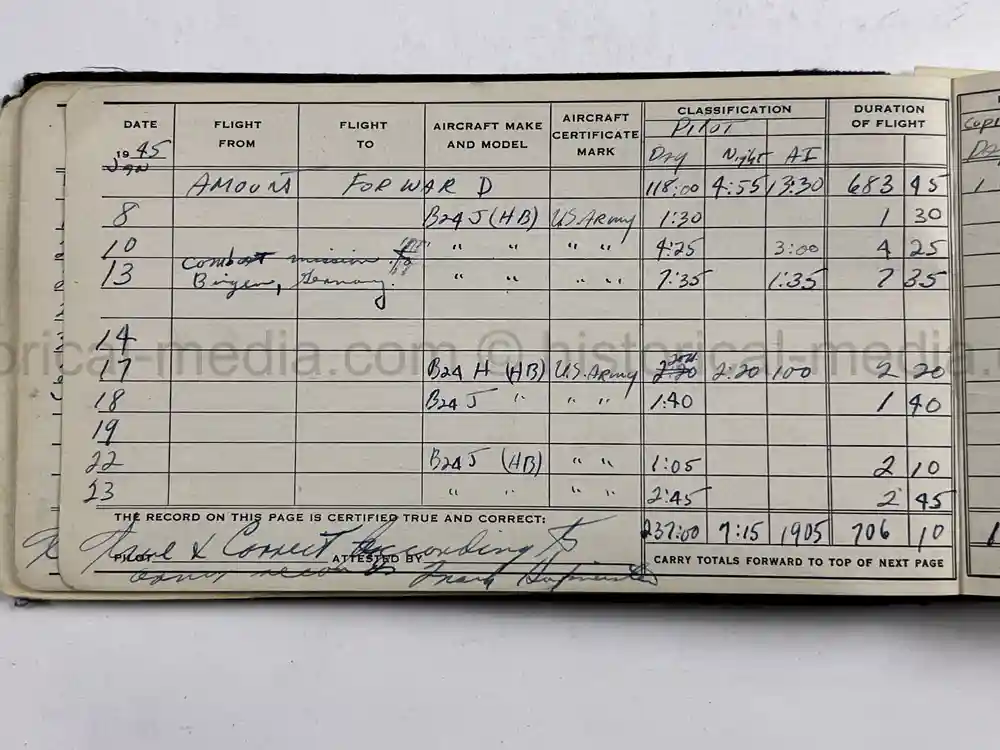 DATE FLIGHT FROM FLIGHT TO AIRCRAFT MAKE AND MODEL AIRCRAFT CERTIFICATE MARK CLASSIFICATION DURATION OF FLIGHT
Pilot
1945 Day Night AI
Jan
AMOUNT FORWARD 118:00 4:55 13:30 683 45
8 B24 J (HB) US Army 1:30 1 30
10 " " " " 4:25 3:00 4 25
13 combat mission to Bingen, Germany. " " " " 7:35 1:35 7 35
14
17 B24 H (HB) U.S. Army 2:20 2:20 1 00 2 20
18 B24 J " " " 1:40 1 40
19
22 B24 J (HB) " " 1:05 2 10
23 " " " " 2:45 2 45
THE RECORD ON THIS PAGE IS CERTIFIED TRUE AND CORRECT: 237:00 7:15 1905 706 10
True & Correct According to
PILOT ATTESTED BY CARRY TOTALS FORWARD TO TOP OF NEXT PAGE
historical-media.com © historical-media.